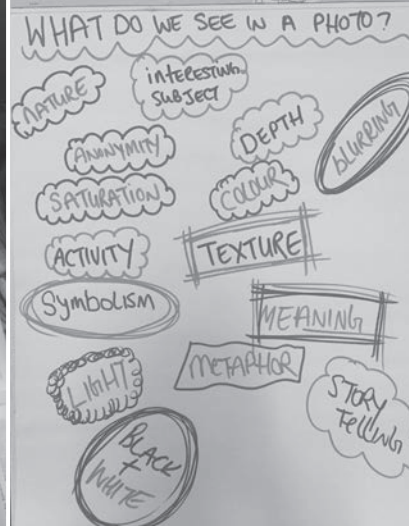 WHAT DO WE SEE IN A PHOTO?
NATURE
interesting
SUBJECT
DEPTH
BLURRING
ANONYMITY
SATURATION
COLOUR
ACTIVITY
TEXTURE
Symbolism
MEANING
METAPHOR
LIGHT
STORY
TELLING
BLACK
+
WHITE